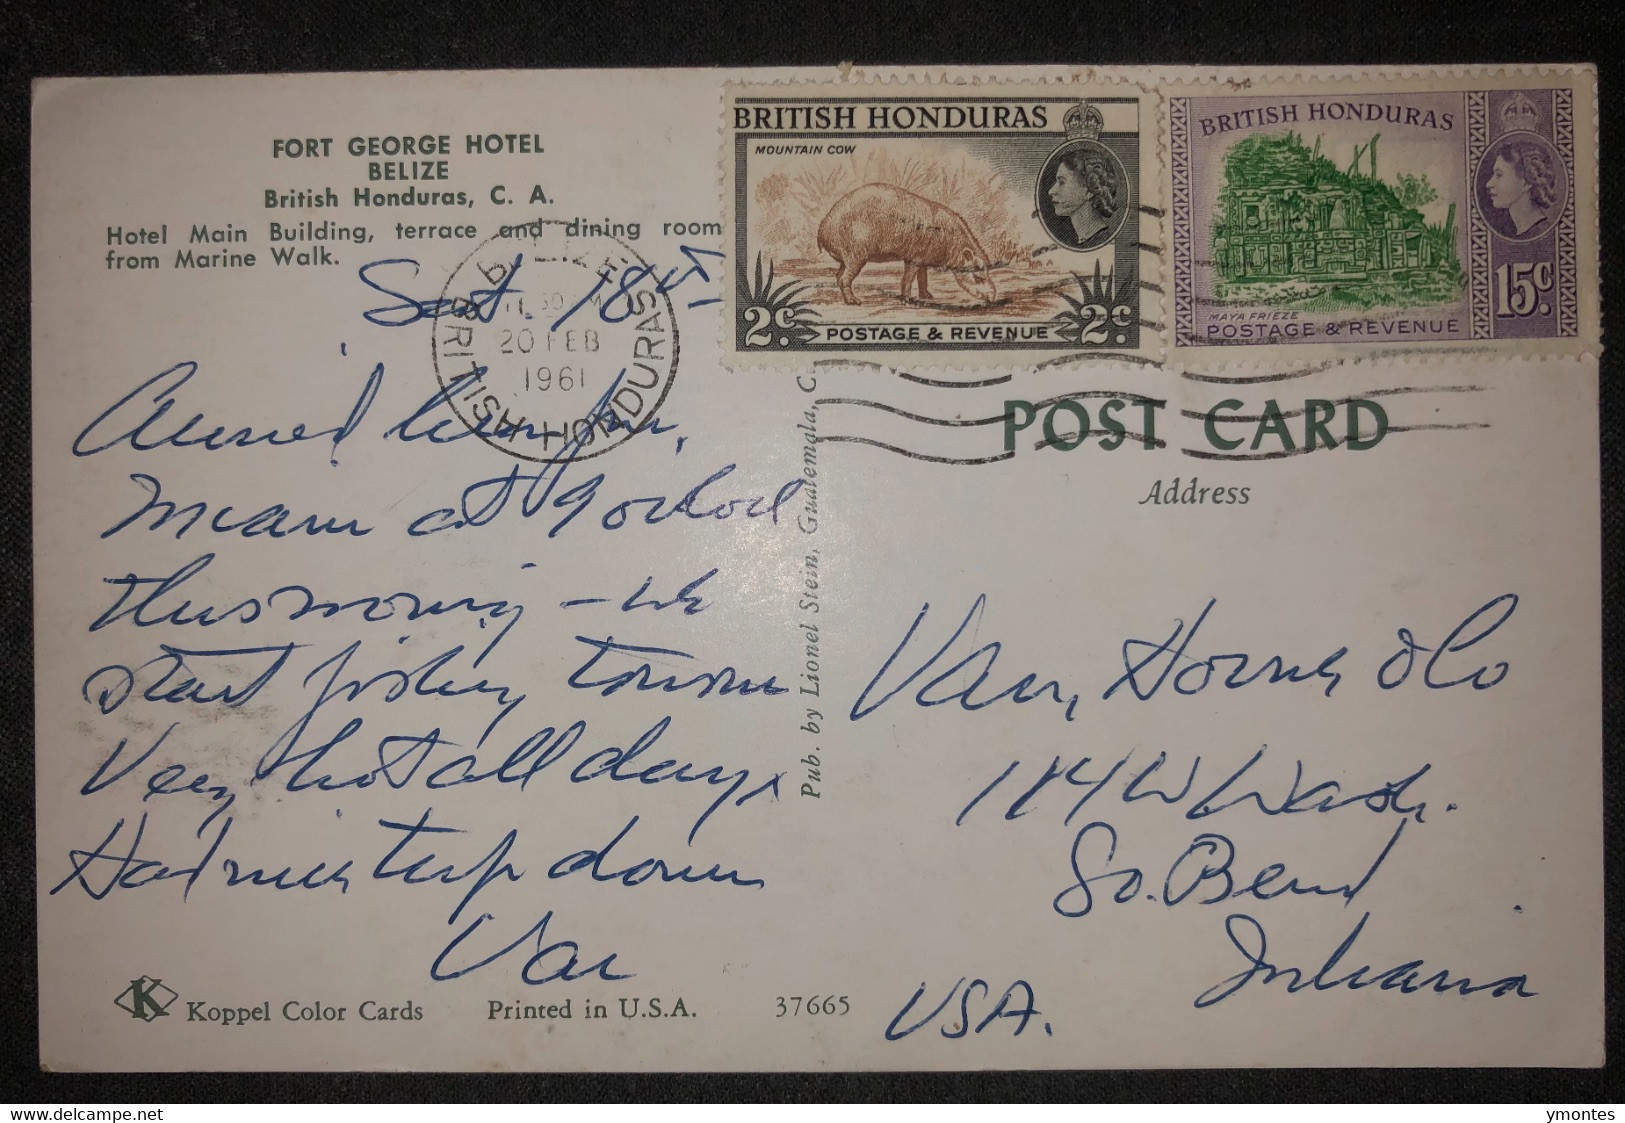 FORT GEORGE HOTEL
BELIZE
British Honduras, C. A.
Hotel Main Building, terrace and dining room
from Marine Walk.
Sat 18th
Arrived from
Miami at 9 o'clock
this morning - we
start fishing tomorrow
Very hot all day.
Had nice trip down
Van
Koppel Color Cards
Printed in U.S.A.
37665
BELIZE
20 FEB
1961
BRITISH HONDURAS
Pub. by Lionel Stein, Guatemala, C
BRITISH HONDURAS
MOUNTAIN COW
2c
POSTAGE & REVENUE
2c
BRITISH HONDURAS
MAYA FRIEZE
15c
POSTAGE & REVENUE
POST CARD
Address
Van Horne & Co
114 W Wash.
So. Bend
Indiana
USA.
ymontes